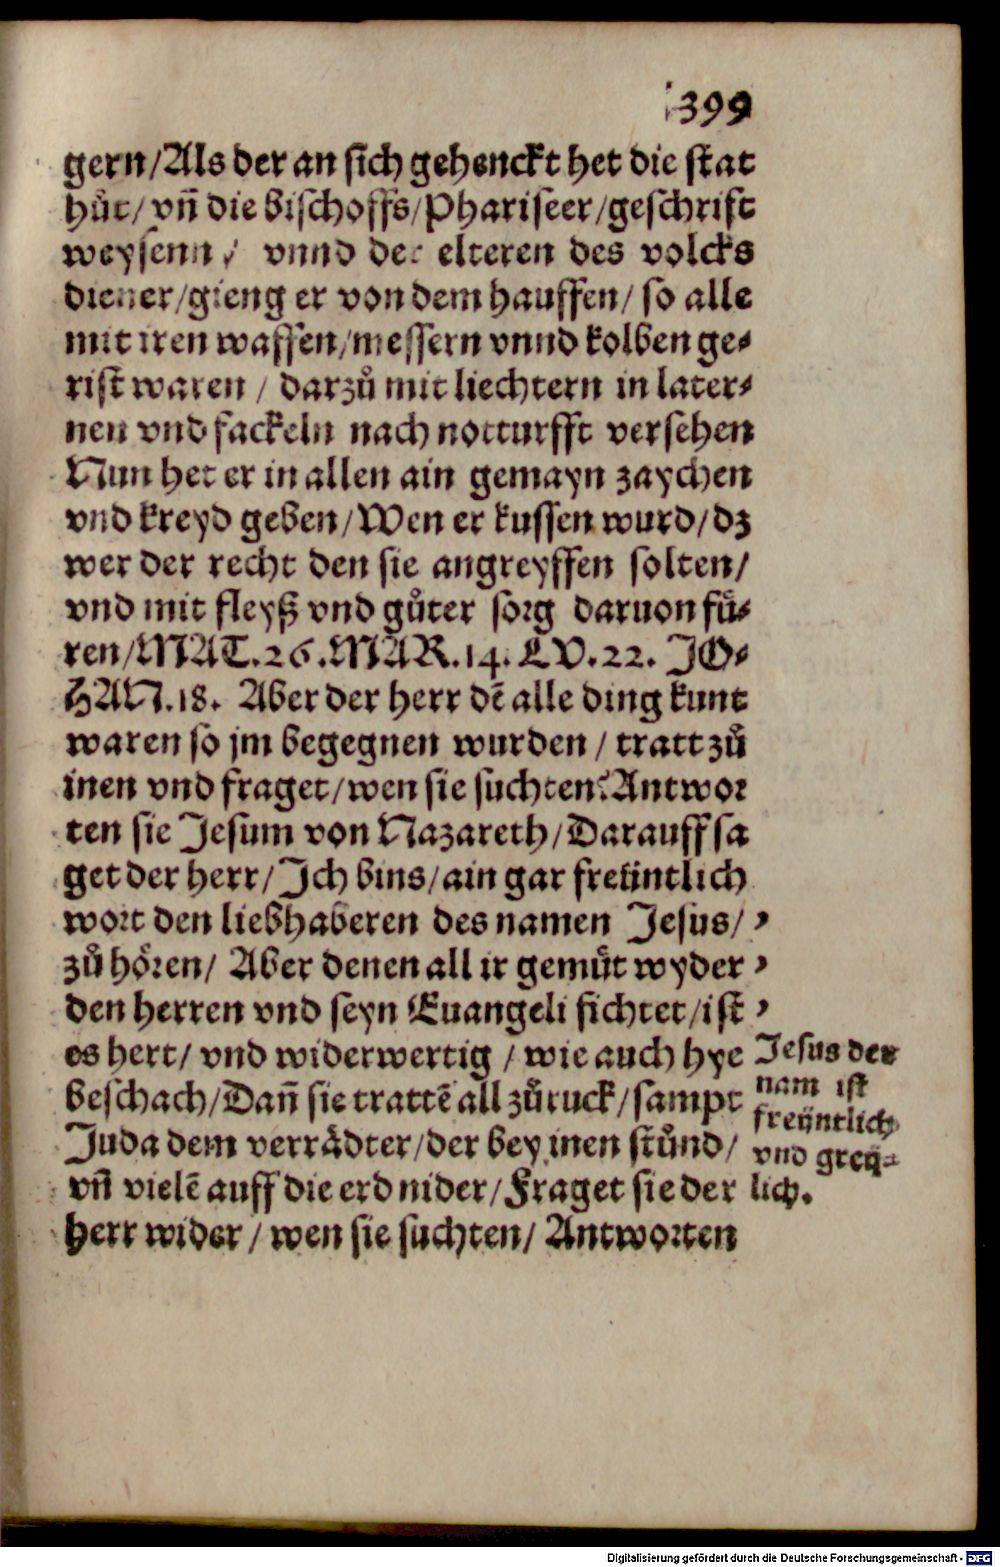 399
gern/Als der an sich gehenckt het die stat
hůt/ vñ die bischoffs/Phariseer/geschrift
weysenn/ vnnd der elteren des volcks
diener/gieng er von dem hauffen/ so alle
mit iren waffen/messern vnnd kolben ge⸗
rist waren / darzů mit liechtern in later⸗
nen vnd fackeln nach notturfft versehen
Nun het er in allen ain gemayn zaychen
vnd kreyd geben/Wen er kussen wurd/dz
wer der recht den sie angreyffen solten/
vnd mit fleyß vnd gůter sorg daruon fů⸗
ren/MAT.26.MAR.14.LV.22. JO⸗
HAN.18. Aber der herr dẽ alle ding kunt
waren so jm begegnen wurden / tratt zů
inen vnd fraget/wen sie suchten? Antwor
ten sie Jesum von Nazareth/Darauff sa
get der herr/Jch bins/ain gar freüntlich
wort den liebhaberen des namen Jesus/ ,
zů hören/ Aber denen all ir gemüt wyder ,
den herren vnd seyn Euangeli fichtet/ist ,
es hert/ vnd widerwertig / wie auch hye
beschach/Dañ sie trattẽ all zůruck/sampt
Juda dem verrädter/der bey inen stůnd/
vñ vielẽ auff die erd nider/Fraget sie der
herr wider / wen sie suchten/ Antworten
Jesus der
nam ist
freüntlich
vnd greü⸗
lich.
Digitalisierung gefördert durch die Deutsche Forschungsgemeinschaft - DFG